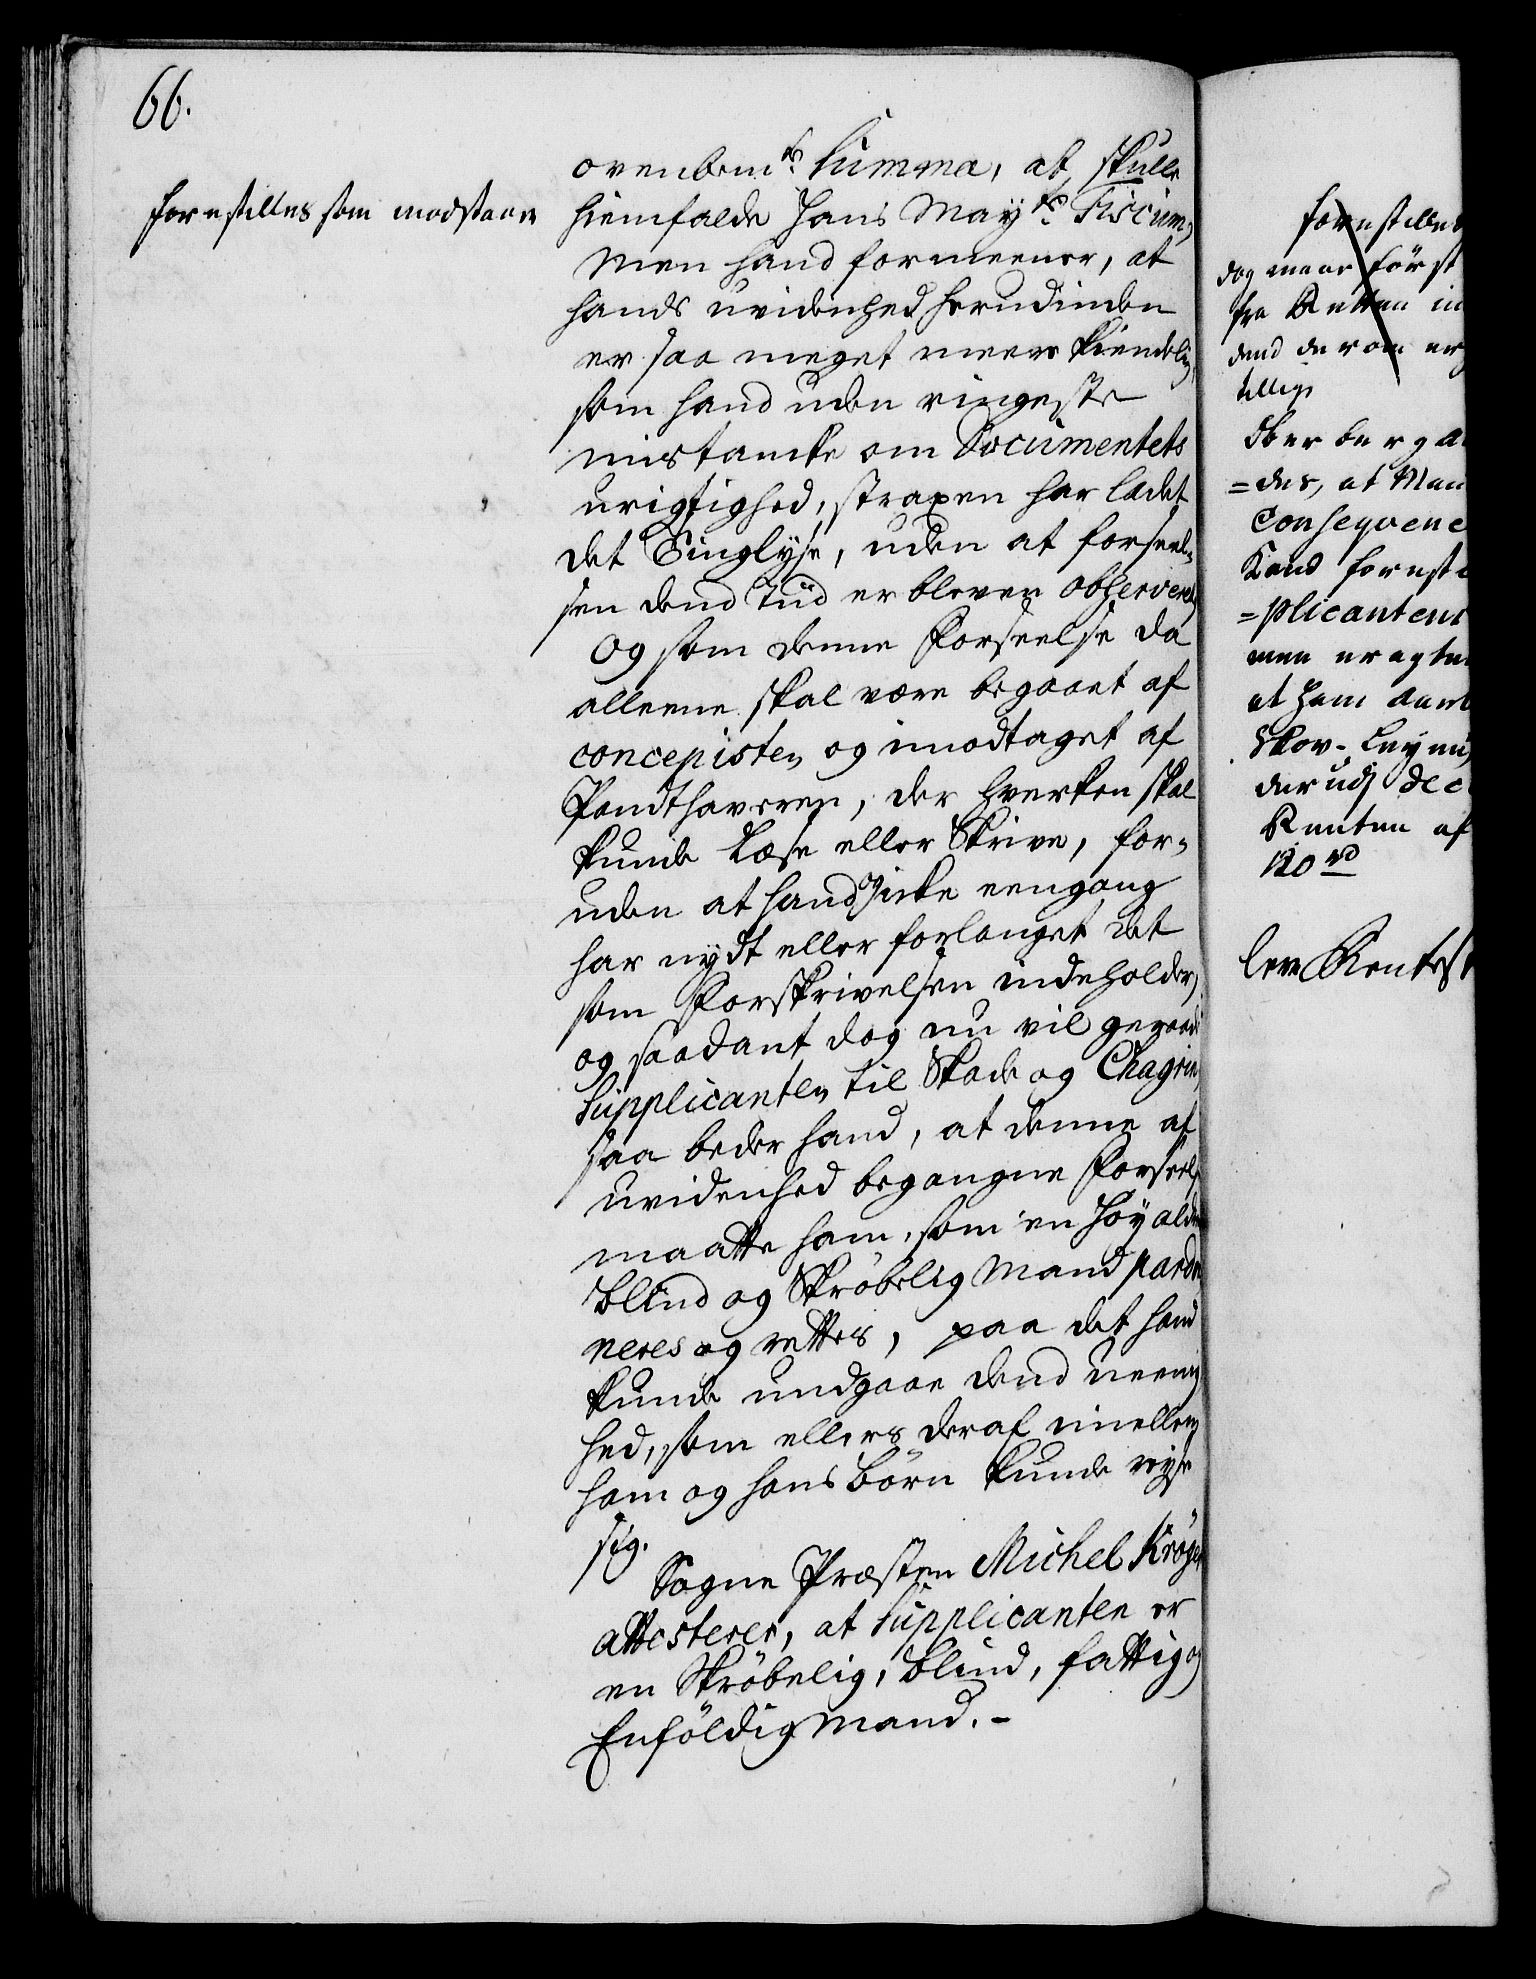 66.
forestilles som modstaaende
ovenbemte Summa, at skulle
hiemfalde Hans Mayts Fiscum,
Men hand formeener, at
hands uvidenhed herudinden
er saa meget meere kiendelig,
som hand uden ringeste
mistancke om Documentets
urigtighed, straxen har ladet
det Tinglyse, uden at forseel-
sen dend Tiid er bleven observeret,
Og som denne Forseelse da
alleene skal være begaaet af
concepisten og imodtaget af
Pandthaveren, der hverken skal
kunde Læse eller Skrive, for-
uden at hand icke eengang
har nydt eller forlanget det
som Forskrivelsen indeholder,
og saadant dog nu vil geraade
Supplicanten til Skade og Chagrin,
saa beder hand, at denne af
uvidenhed begangne Forseelse
maatte ham, som en Høy alders
blind og Skrøbelig Mand pardo
neres og rettes, paa det hand
kunde undgaae dend ueenig
hed, som ellers deraf imellem
ham og hans Børn kunde reyse
sig.
Sogne Præsten Michel Krøger
attesterer, at Supplicanten er
en Skrøbelig, blind, fattig og
Enfoldig Mand.-
forestilled
dog maae først
fra Retten in
dend derom er
tillige
Oberberg A
=des, at Man
Conseqvence
Kand forest
=plicantens
men eragte
at ham
Skov-
derudj dec
Renten af
120 rd
lev Rentes